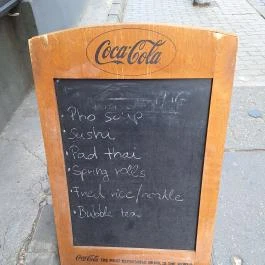 Coca-Cola
• Pho soup
• Sushi
• Pad thai
• Spring rolls
• Fried rice/noodle
• Bubble tea
Coca-Cola THE MOST REFRESHING DRINK IN THE WORLD